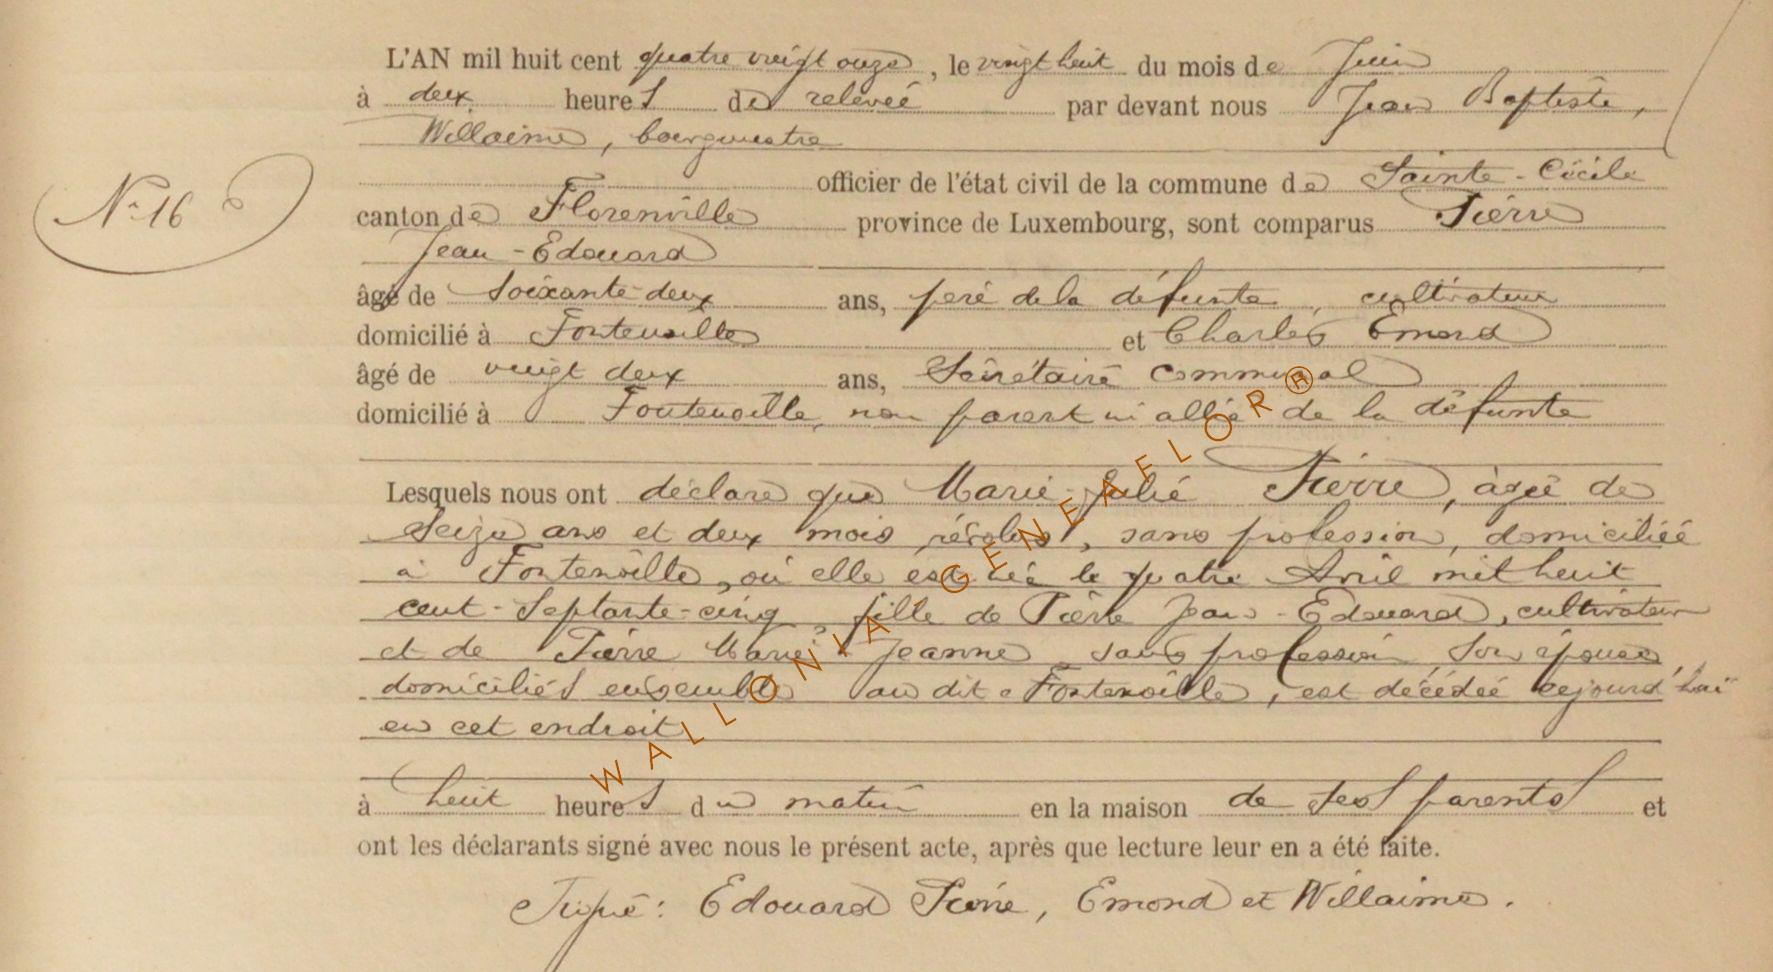 L'AN mil huit cent quatre vingt onze, le vingt huit du mois de Juin
à deux heures de relevée par devant nous Jean Baptiste,
Willaime, bourgmestre
officier de l'état civil de la commune de Sainte-Cécile
N° 16
canton de Florenville province de Luxembourg, sont comparus Pierre
Jean-Edouard
âgé de Soixante-deux ans, père de la défunte, cultivateur
domicilié à Fontenoille et Charles Emond
âgé de vingt deux ans, Secrétaire communal
domicilié à Fontenoille, non parent ni allié de la défunte
Lesquels nous ont déclaré que Marie-Julie Pierre, âgée de
Seize ans et deux mois révolus, sans profession, domiciliée
à Fontenoille, où elle est née le quatre Avril mil huit
cent-Septante-cinq, fille de Pierre Jean-Edouard, cultivateur
et de Pierre Marie Jeanne sans profession, Son épouse,
domiciliés ensemble au dit Fontenoille, est décédée cejourd'hui
en cet endroit
à huit heures du matin en la maison de ses parents et
ont les déclarants signé avec nous le présent acte, après que lecture leur en a été faite.
Signé: Edouard Pierre, Emond et Willaime.
WALLONIA-GENEAFLOR®